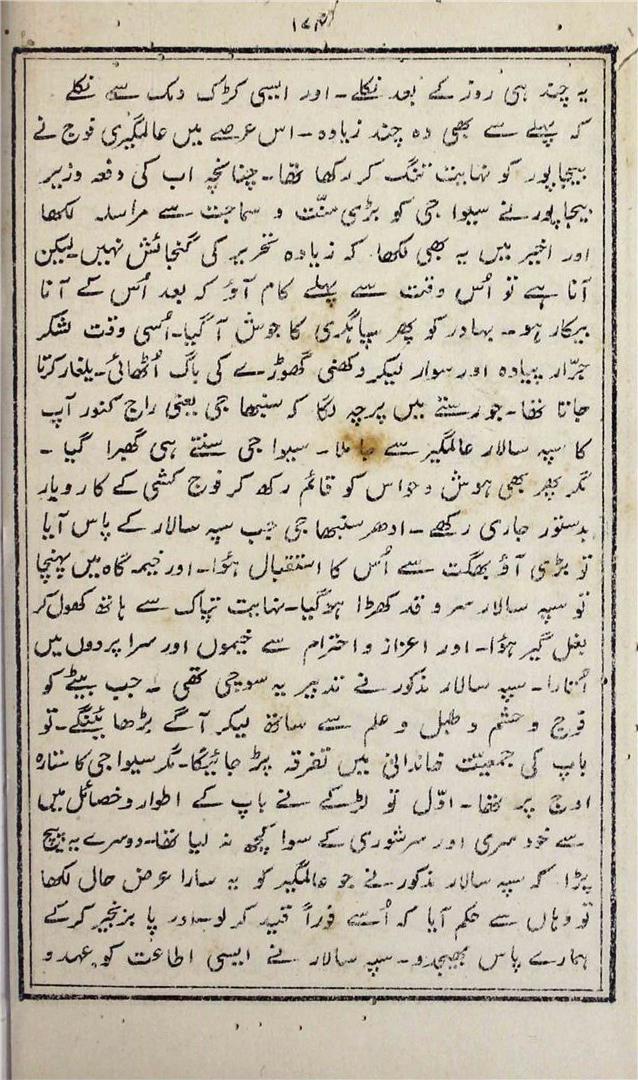 یہ چند ہی روز کے بعد نکلے۔ اور ایسی کڑک دمک سے نکلے
کہ پہلے سے بھی دہ چند زیادہ۔ اس عرصے میں عالمگیری فوج نے
بیجاپور کو نہایت تنگ کر رکھا تھا۔ چنانچہ اب کی دفعہ وزیر
بیجاپور نے سیوا جی کو بڑی منّت و سماجت سے مراسلہ لکھا
اور اخیر میں یہ بھی لکھا کہ زیادہ تحریر کی گنجائش نہیں۔ لیکن
آنا ہے تو اُس وقت سے پہلے کام آؤ کہ بعد اُس کے آنا
بیکار ہو۔ بہادر کو پھر سپاہگری کا جوش آ گیا۔ اُسی وقت لشکر
جرّار پیادہ اور سوار لیکر دکھنی گھوڑے کی باگ اُٹھائی۔ یلغار کرتا
جاتا تھا۔ جو رستے میں پرچہ لگا کہ سنبھا جی یعنی راج کنور آپ
کا سپہ سالار عالمگیر سے جا ملا۔ سیوا جی سنتے ہی گھبرا گیا۔
مگر پھر بھی ہوش و حواس کو قائم رکھ کر فوج کشی کے کاروبار
بدستور جاری رکھے۔ ادھر سنبھا جی جب سپہ سالار کے پاس آیا
تو بڑی آؤ بھگت سے اُس کا استقبال ہؤا۔ اور خیمہ گاہ میں پہنچا
تو سپہ سالار سر و قد کھڑا ہوگیا۔ نہایت تپاک سے ہاتھ کھول کر
بغل گیر ہؤا۔ اور اعزاز و احترام سے خیموں اور سراپردوں میں
اُتارا۔ سپہ سالار مذکور نے تدبیر یہ سوچی تھی۔ جب بیٹے کو
فوج و حشم و طبل و علم سے ساتھ لیکر آگے بڑھا ئینگے۔ تو
باپ کی جمعیّت خاندانی میں تفرقہ پڑ جائیگا۔ مگر سیوا جی کا ستارہ
اوج پر تھا۔ اوّل تو لڑکے نے باپ کے اطوار و خصائل میں
سے خود سری اور سرشوری کے سوا کچھ نہ لیا تھا۔ دوسرے یہ پیچ
پڑا کہ سپہ سالار مذکور نے جو عالمگیر کو یہ سارا عرض حال لکھا
تو وہاں سے حکم آیا کہ اُسے فوراً قید کر لو۔ اور پا بزنجیر کرکے
ہمارے پاس بھیجدو۔ سپہ سالار نے ایسی اطاعت کو عہد و